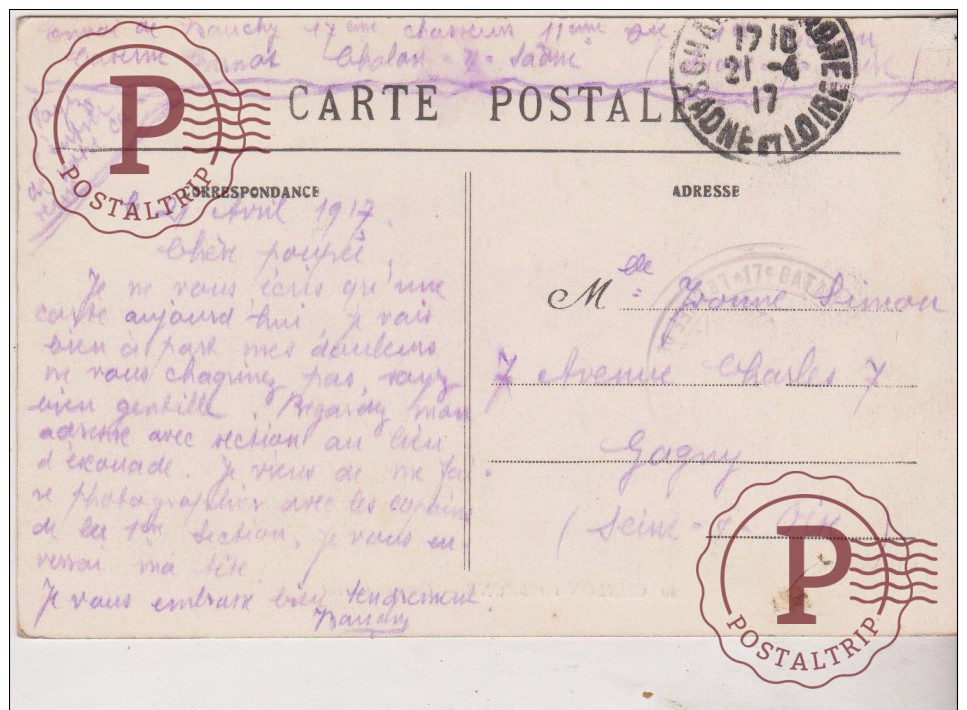 Envoi de Bauchy 17ème chasseurs 11ème
Caserne Carnot Chalon-s-Saône
CARTE POSTALE
17 10
21 -4
17
SAONE ET LOIRE
CORRESPONDANCE
ADRESSE
Le 21 Avril 1917.
Chère poupée,
Je ne vous écris qu'une
carte aujourd'hui, je vais
bien à part mes douleurs
ne vous chagrinez pas, soyez
bien gentille. Regardez mon
adresse avec section au lieu
d'escouade. Je viens de me fai-
re photographier avec les copains
de la 1ère section, je vous en-
verrai ma tête.
Je vous embrasse bien tendrement.
Bauchy
Mlle Yvonne Simon
7 Avenue Charles 7
Gagny
(Seine-&-Oise)
17e BATA
P
POSTALTRIP
P
POSTALTRIP